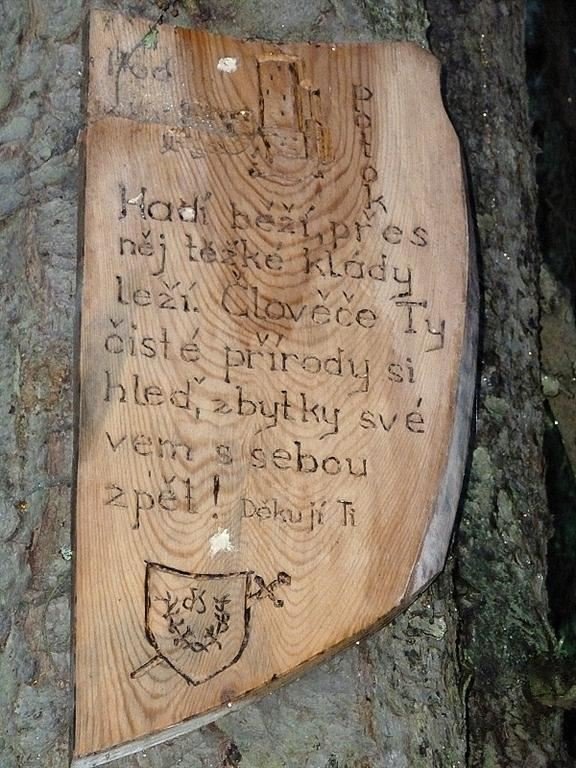 Pod
potok
Hadí běží, přes
něj těžké klády
leží. Člověče Ty
čisté přírody si
hleď, zbytky své
vem s sebou
zpět! Děkují Ti
dS